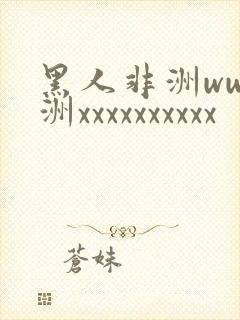 黑人非洲wu
洲xxxxxxxxxx
蒼妹